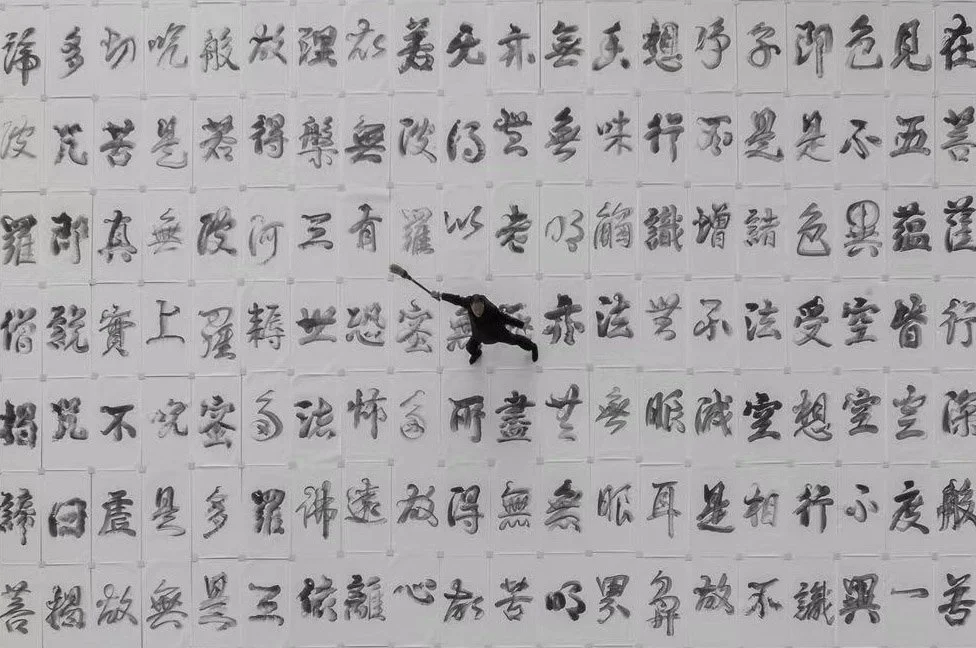 在菩薩行深般若
見五蘊皆空度一
色不異空空不異
即是色受想行識
子是諸法空相不
淨不增不減是故
想行識無眼耳鼻
香味觸法無眼界
無無明亦無無明
亦無老盡無苦
无得以無所得故
菩波羅密多故心
故無有恐怖遠離
涅槃三世法佛依
故得阿耨多羅三
般若波羅密多是
咒是無上咒是無
切苦真實不虛故
多咒即說咒曰揭
諦波羅僧揭諦菩